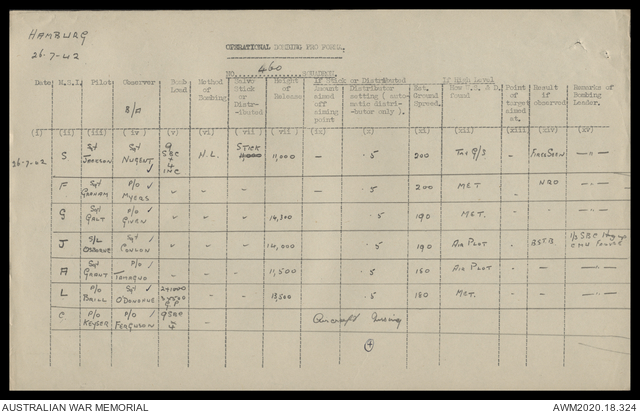 HAMBURG
26.7.42
OPERATIONAL BOMBING PRO FORMA.
NO. 460 SQUADRON.
Date N.S.I. Pilot Observer Bomb Load Method of Bombing Salvo Stick or Distr-ibuted Height of Release If Stick or Distributed If High Level Point of target aimed at. Result if observed Remarks of Bombing Leader.
Amount aimed off aiming point Distributor setting (automatic distributor only). Est. Ground Speed. How W.S. & D. found
B/A
(i) (ii) (iii) (iv) (v) (vi) (vii) (vii) (ix) (x) (xii) (xiii) (xiv) (xv)
26-7-42 S Sgt JACKSON Sgt NUGENT ✓ 9 SBC + 4 INC H.L. STICK 11,000 — .5 200 TAG G/S — FIRES SEEN — —
F Sgt GRAHAM P/O ✓ MYERS " " " " — .5 200 MET — NRO — —
G Sgt GALT P/O ✓ GIVEN " " " 14,300 — .5 190 MET. — " — —
J S/L OSBORNE Sgt CONLON " " " 14,000 — .5 190 AIR PLOT — BSTB. 1/3 SBC Hung up
A Sgt GRANT P/O TOMAGNO " " " 11,500 — .5 160 AIR PLOT — " — —
L P/O BRILL Sgt ✓ O'DONOHUE " " 13,500 — .5 180 MET. — " — —
C P/O KEYSER P/O FERGUSON 9 SBC — Aircraft Missing
AUSTRALIAN WAR MEMORIAL
AWM2020.18.324